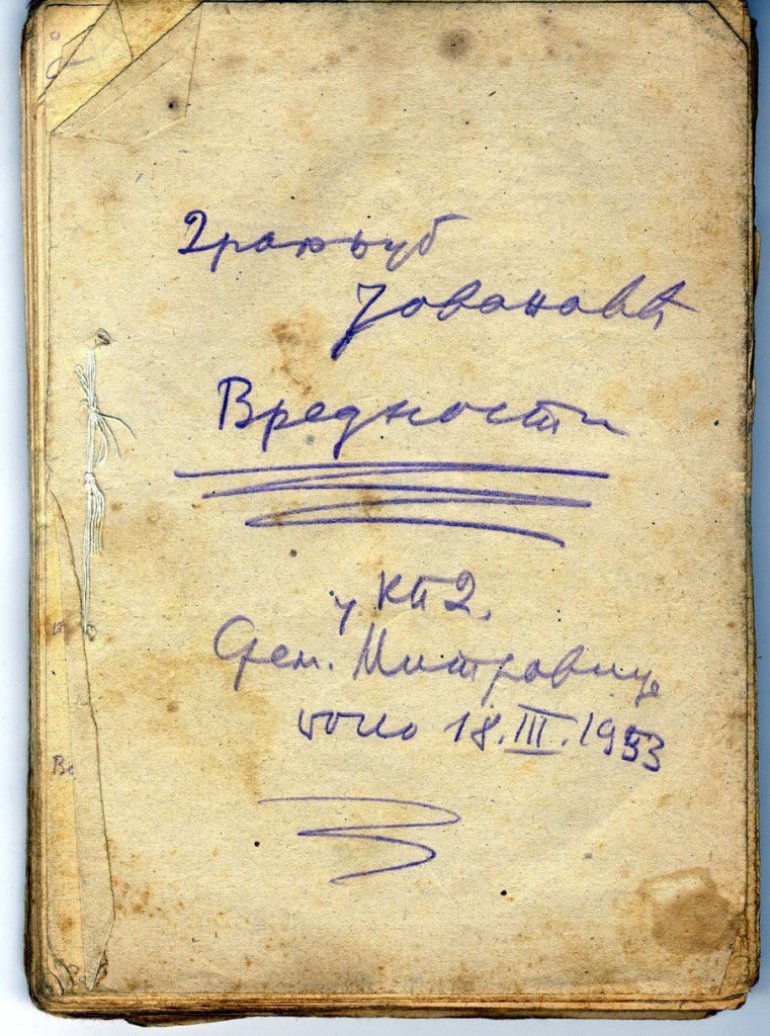 Драгољуб
Јовановић
Вредности
у КПД.
Срем. Митровица
18.III.1953